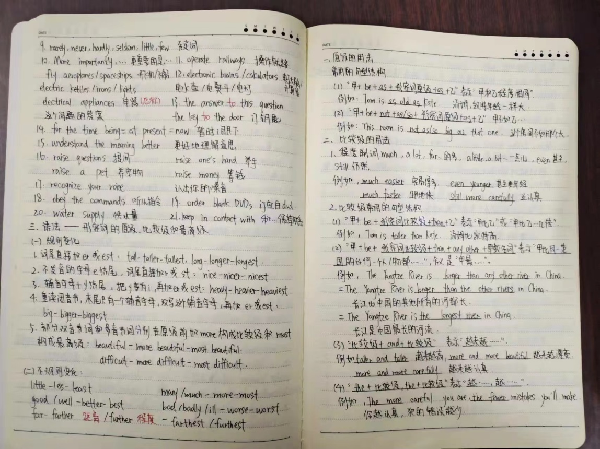 9. rarely, never, hardly, seldom, little, few 否定词
10. More importantly, ... 更重要的是... 11. operate railways 操作铁路运营
fly aeroplanes/spaceships 12. electronic brains / calculators
electric kettles / irons / hobs 电水壶 / 电熨斗 / 电灶
electrical appliances 电器 13. the answer to this question
这个问题的答案 the key to the door 门钥匙
14. for the time being = at present = now 暂时；眼下
15. understand the meaning better 更好地理解意思
16. raise questions 提问 raise one's hand 举手
raise a pet 养宠物 raise money 筹钱
17. recognize your voice 认出你的声音
18. obey the commands 听从指令 19. order blank DVDs
20. water supply 供水 21. keep in contact with sb.
三. 语法 —— 形容词的原级，比较级和最高级
(一) 规则变化
1. 词尾直接加 er 或 est. tall-taller-tallest. long-longer-longest
2. 不发音的字母 e 结尾，词尾直接加 r 或 st. nice-nicer-nicest
3. 辅音字母 + y 结尾，把 y 变为 i，再加 er 或 est. heavy-heavier-heaviest
4. 重读闭音节，末尾只有一个辅音字母，双写这个辅音字母，再加 er 或 est.
big-bigger-biggest
5. 部分双音节词和多音节词分别在原级前加 more 构成比较级和 most
构成最高级. beautiful-more beautiful-most beautiful.
difficult-more difficult-most difficult.
(二) 不规则变化
little-less-least many/much-more-most
good/well-better-best bad/badly/ill-worse-worst
far-farther 距离 /further 程度 -farthest/furthest
一. 原级的用法
常用的句型结构
(1) "甲+be+as+形容词原级+as+乙" 表示 "甲和乙程度相同"
例如: Tom is as old as Kate.
(2) "甲+be+not+as/so+形容词原级+as+乙"
例如: This room is not as/so big as that one.
二. 比较级的用法
1. 程度副词 much, a lot, far a little, a bit 一点儿, even 甚至,
still 仍然
例如, much easier even younger
much faster still more carefully
2. 比较级常用的句型结构
(1) "甲+be+形容词比较级+than+乙" 表示 "甲比乙..."
例如, Tom is taller than Kate.
(2) "甲+be+形容词比较级+than+any other+单数名词"
例如, The Yangtze River is longer than any other river in China.
= The Yangtze River is longer than the other rivers in China.
长江比中国的其他所有的河都长.
= The Yangtze River is the longest river in China.
长江是中国最长的河流.
(3) "比较级+and+比较级" 表示 "越来越..."
例如 taller and taller more and more beautiful 越来越漂亮
more and more careful 越来越认真
(4) "the+比较级, the+比较级" 表示 "越..., 越..."
例如, The more careful you are, the fewer mistakes you'll make.
你越认真，犯的错误越少